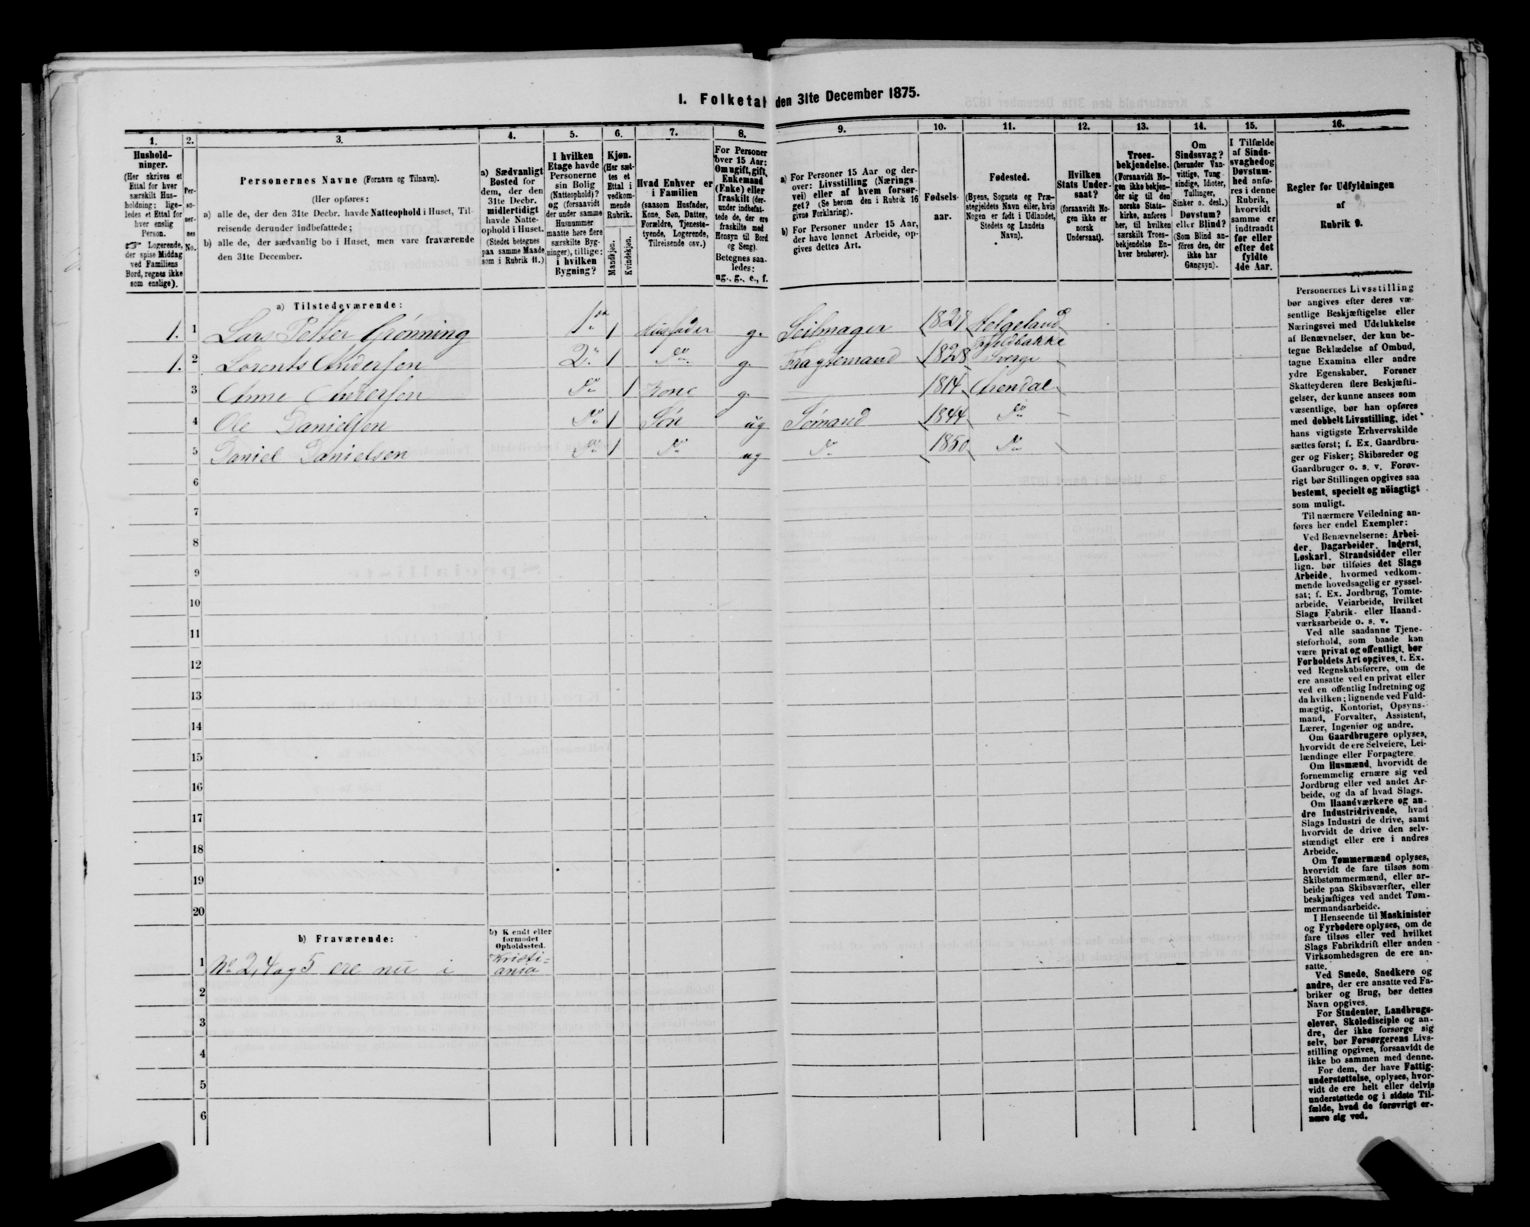 I. Folketal den 31te December 1875.
1. 2. 3. 4. 5. 6. 7. 8. 9. 10. 11. 12. 13. 14. 15. 16.
Hushold-
ninger.
(Her skrives et
Ettal for hver
særskilt Hus-
holdning; lige-
ledes et Ettal for
hver enslig
Person.
☞ Logerende,
der spise Middag
ved Familiens
Bord, regnes ikke
som enslige).
Per-
soner-
nes
No.
Personernes Navne (Fornavn og Tilnavn).
(Her opføres:
a) alle de, der den 31te Decbr. havde Natteophold i Huset, Til-
reisende derunder indbefattede;
b) alle de, der sædvanlig bo i Huset, men vare fraværende
den 31te December.
a) Sædvanligt
Bosted for
dem, der den
31te Decbr.
midlertidigt
havde Natte-
ophold i Huset.
(Stedet betegnes
paa samme Maade
som i Rubrik 11.)
I hvilken
Etage havde
Personerne
sin Bolig
(Natteophold)?
og (forsaavidt
der under samme
Husnummer
maatte høre flere
særskilte Byg-
ninger), tillige:
i hvilken
Bygning?
Kjøn.
(Her sæt-
tes et
Ettal i
vedkom-
mende
Rubrik.
Mandkjøn.
Kvindekjøn.
Hvad Enhver er
i Familien
(saasom Husfader,
Kone, Søn, Datter,
Forældre, Tjeneste-
tyende, Logerende,
Tilreisende osv.)
For Personer
over 15 Aar:
Om ugift, gift,
Enkemand
(Enke) eller
fraskilt (der-
under indbefat-
tede de, der ere
fraskilte med
Hensyn til Bord
og Seng).
Betegnes saa-
ledes:
ug., g., e., f.
a) For Personer 15 Aar og der-
over: Livsstilling (Nærings-
vei) eller af hvem forsør-
get? (Se herom den i Rubrik 16
givne Forklaring).
b) For Personer under 15 Aar,
der have lønnet Arbeide, op-
gives dettes Art.
Fødsels-
aar.
Fødested.
(Byens, Sognets og Præ-
stegjeldets Navn eller, hvis
Nogen er født i Udlandet,
Stedets og Landets
Navn).
Hvilken
Stats Under-
saat?
(forsaavidt No-
gen ikke er
norsk
Undersaat).
Troes-
bekjendelse.
(Forsaavidt No-
gen ikke bekjen-
der sig til den
norske Stats-
kirke, anføres
her, til hvilken
særskilt Troes-
bekjendelse En-
hver henhører).
Om
Sindssvag?
(herunder Van-
vittige, Tung-
sindige, Idioter,
Tullinger,
Sinker o. desl.)
Døvstum?
eller Blind?
(Som Blind an-
føres den, der
ikke har
Gangsyn).
I Tilfælde
af Sinds-
svaghed og
Døvstum-
hed anfø-
res i denne
Rubrik,
hvorvidt
samme er
indtraadt
før eller
efter det
fyldte
4de Aar.
Regler for Udfyldningen
af
Rubrik 9.
a) Tilstedeværende:
1. 1 Lars Petter Grønning 1ste 1 Husfader g. Seilmager 1821 Helgeland
1. 2 Lorents Andersen 2. 1 Do g. Fragtemand 1828 Sverge
3 Anne Andersen Do 1 Kone g. 1814 Arendal
4 Ole Danielsen Do 1 Søn ug Sømand 1844 Do
5 Daniel Danielsen Do 1 Do ug Do 1850 Do
6
7
8
9
10
11
12
13
14
15
16
17
18
19
20
b) Fraværende:
b) Kjendt eller
formodet
Opholdssted.
1 No 2, 4 og 5 ere nu i Kristi-
ania
2
3
4
5
6
Personernes Livsstilling
bør angives efter deres væ-
sentlige Beskjæftigelse eller
Næringsvei med Udelukkelse
af Benævnelser, der kun be-
tegne Beklædelse af Ombud,
tagne Examina eller andre
ydre Egenskaber. Forener
Skatteyderen flere Beskjæfti-
gelser, der kunne ansees som
væsentlige, bør han opføres
med dobbelt Livsstilling, idet
hans vigtigste Erhvervskilde
sættes først; f. Ex. Gaardbru-
ger og Fisker; Skibsreder og
Gaardbruger o. s. v. Forøv-
rigt bør Stillingen opgives saa
bestemt, specielt og nöiagtigt
som muligt.
Til nærmere Veiledning an-
føres her endel Exempler:
Ved Benævnelserne: Arbei-
der, Dagarbeider, Inderst,
Løskarl, Strandsidder eller
lign. bør tilføies det Slags
Arbeide, hvormed vedkom-
mende hovedsagelig er syssel-
sat; f. Ex. Jordbrug, Tomte-
arbeide, Veiarbeide, hvilket
Slags Fabrik- eller Haand-
værksarbeide o. s. v.
Ved alle saadanne Tjene-
steforhold, som baade kan
være privat og offentligt, bør
Forholdets Art opgives, t. Ex.
ved Regnskabsførere, om de
ere ansatte ved en privat eller
ved en offentlig Indretning og
da hvilken; lignende ved Fuld-
mægtig, Kontorist, Opsyns-
mand, Forvalter, Assistent,
Lærer, Ingeniør og andre.
Om Gaardbrugere oplyses,
hvorvidt de ere Selveiere, Lei-
lændinge eller Forpagtere
Om Husmænd, hvorvidt de
fornemmelig ernære sig ved
Jordbrug eller ved andet Ar-
beide, og da af hvad Slags.
Om Haandværkere og an-
dre Industridrivende, hvad
Slags Industri de drive, samt
hvorvidt de drive den selv-
stændigt eller ere i andres
Arbeide.
Om Tømmermænd oplyses,
hvorvidt de fare tilsøs som
Skibstømmermænd, eller ar-
beide paa Skibsværfter, eller
beskjæftiges ved andet Tøm-
mermandsarbeide.
I Henseende til Maskinister
og Fyrbødere oplyses, om de
fare tilsøs eller ved hvilket
Slags Fabrikdrift eller anden
Virksomhedsgren de ere an-
satte.
Ved Smede, Snedkere og
andre, der ere ansatte ved Fa-
briker og Brug, bør dettes
Navn opgives.
For Studenter, Landbrugs-
elever, Skoledisciple og an-
dre, der ikke forsørge sig
selv, bør Forsørgerens Livs-
stilling opgives, forsaavidt de
ikke bo sammen med denne.
For dem, der have Fattig-
understøttelse, oplyses, hvor-
vidt de ere helt eller delvis
understøttede og i sidste Til-
fælde, hvad de forøvrigt er-
nære sig ved.